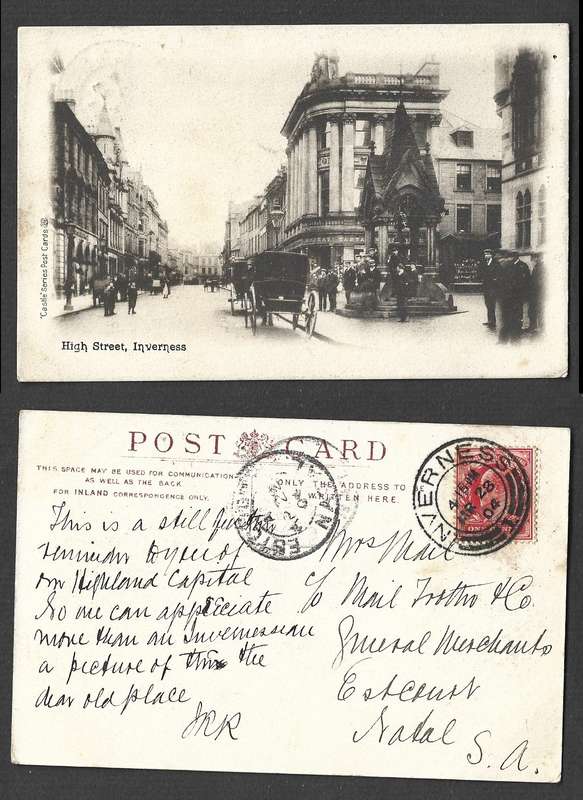 'Castle' Series Post Cards
High Street, Inverness
POST CARD
THIS SPACE MAY BE USED FOR COMMUNICATION
AS WELL AS THE BACK.
FOR INLAND CORRESPONDENCE ONLY.
ONLY THE ADDRESS TO
WRITTEN HERE.
INVERNESS
28
04
ONE PENNY
ESTC
This is a still further
reminder to you of
our Highland Capital
No one can appreciate
more than an Invernessian
a picture of the
dear old place
Mrs Mail
c/o Mail & Co.
General Merchants
Estcourt
Natal
S. A.